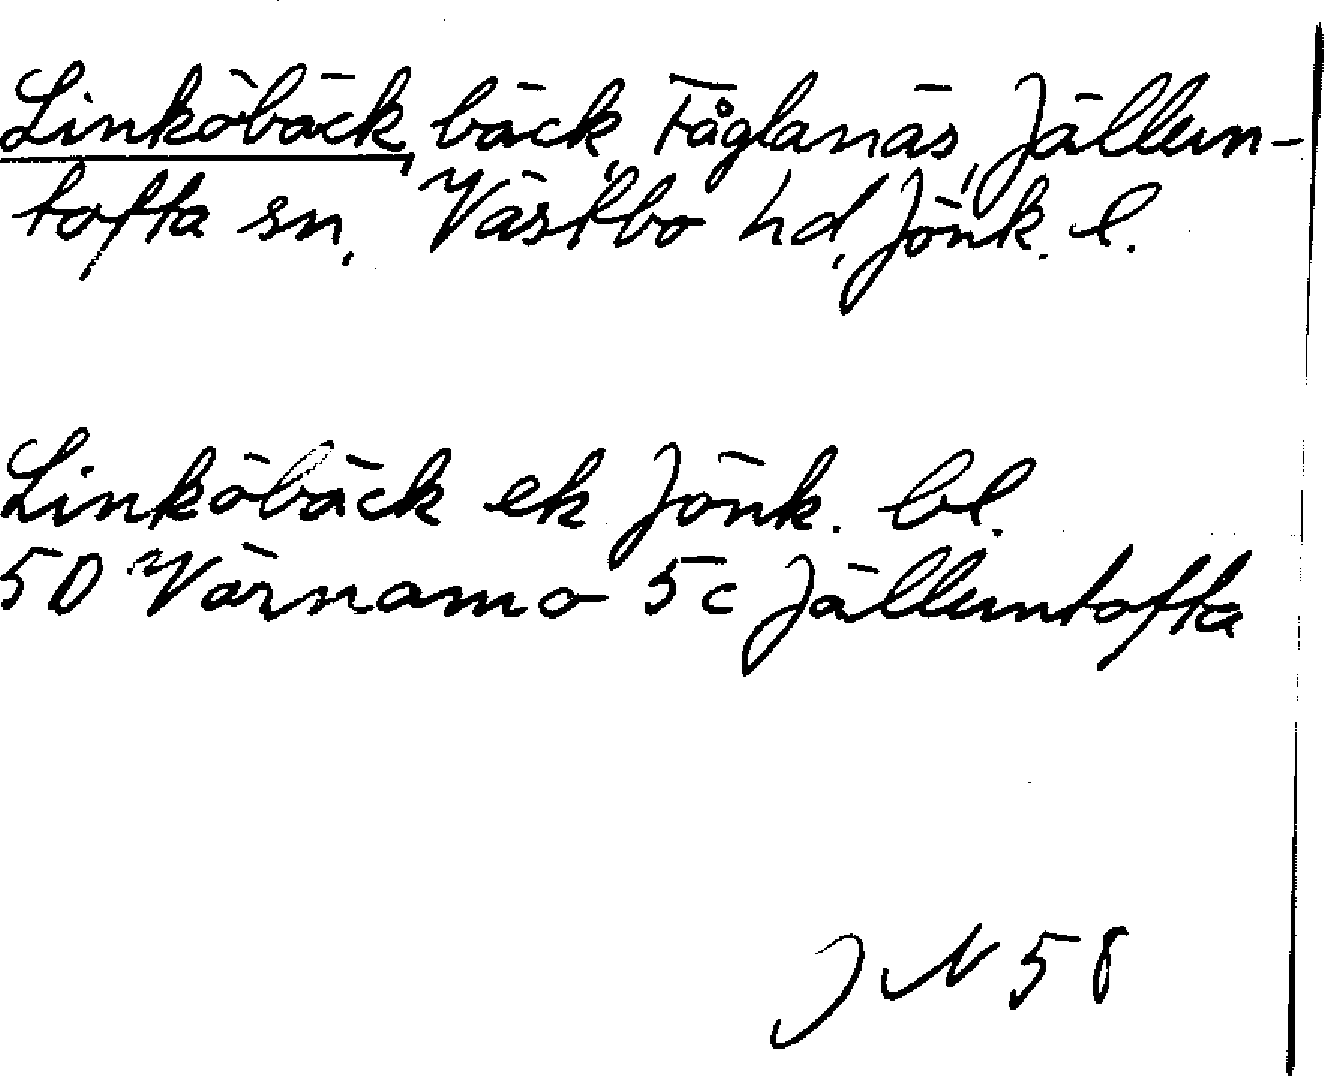 Linköbäck, bäck, Fåglanäs, Jällun-
tofta sn, Västbo hd, Jönk. l.
Linköbäck ek Jönk. bl.
5D Värnamo 5c Jälluntofta
JN 58